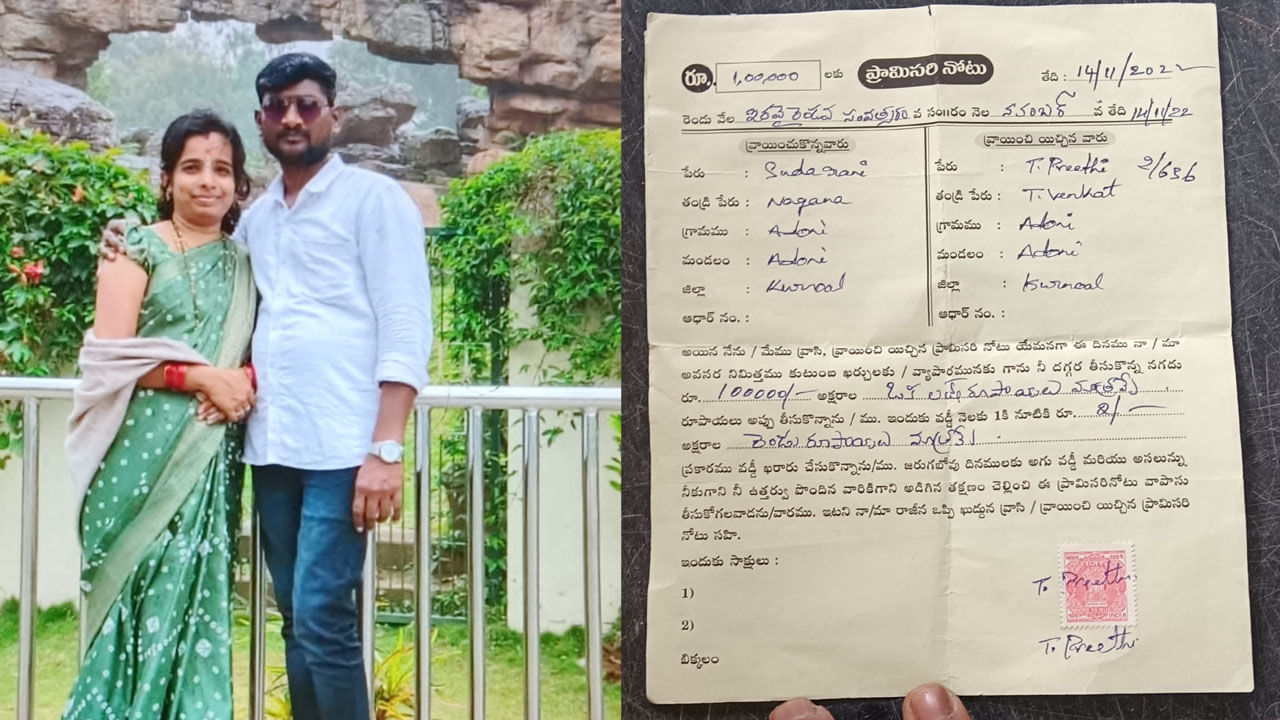 రూ. 1,00,000 లకు ప్రామిసరి నోటు తేది : 14/11/2022
రెండు వేల ఇరవై రెండవ సంవత్సరం వ సం॥రం నెల నవంబర్ వ తేది 14/11/22
వ్రాయించుకొన్నవారు
పేరు : Suda Rani
తండ్రి పేరు : Nagana
గ్రామము : Adoni
మండలం : Adoni
జిల్లా : Kurnool
ఆధార్ నం. :
వ్రాయించి యిచ్చిన వారు
పేరు : T. Preethi 2/636
తండ్రి పేరు : T. Venkat
గ్రామము : Adoni
మండలం : Adoni
జిల్లా : Kurnool
ఆధార్ నం. :
అయిన నేను / మేము వ్రాసి, వ్రాయించి యిచ్చిన ప్రామిసరి నోటు యేమనగా ఈ దినము నా / మా
అవసర నిమిత్తము కుటుంబ ఖర్చులకు / వ్యాపారమునకు గాను నీ దగ్గర తీసుకొన్న నగదు
రూ. 100000/- అక్షరాల ఒక లక్ష రూపాయలు మాత్రమే
రూపాయలు అప్పు తీసుకొన్నాను / ము. ఇందుకు వడ్డీ నెలకు 1కి నూటికి రూ. 2/-
అక్షరాల రెండు రూపాయలు మాత్రమే
ప్రకారము వడ్డీ ఖరారు చేసుకొన్నాను/ము. జరుగబోవు దినములకు అగు వడ్డీ మరియు అసలున్ను
నీకుగాని నీ ఉత్తర్వు పొందిన వారికిగాని అడిగిన తక్షణం చెల్లించి ఈ ప్రామిసరినోటు వాపాసు
తీసుకోగలవాడను/వారము. ఇటని నా/మా రాజీన ఒప్పి ఖుద్దున వ్రాసి / వ్రాయించి యిచ్చిన ప్రామిసరి
నోటు సహి.
ఇందుకు సాక్షులు :
1)
2)
బిక్కలం
T. Preethi
T. Preethi